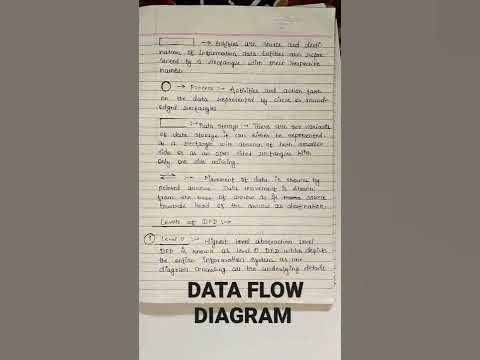 → Entities are source and desti
nation of information data Entities are repre
sented by a rectangle with their respective
names
→ Process :- Activities and action taken
on the data represented by circle or round-
edged rectangles
:- Data Storage :- There are two variants
of data storage it can either be represented
as a rectangle with absence of both smaller
side or as an open sided rectangles with
only one side missing.
:- Movement of data is shown by
pointed arrows. Data movement is shown
from the base of arrow as its source
towards head of the arrow as destination.
Levels of DFD :-
1 Level 0 :- Highest level abstraction level
DFD is known as level 0 DFD which depicts
the entire information system as one
diagram concealing all the underlying details
DATA FLOW
DIAGRAM